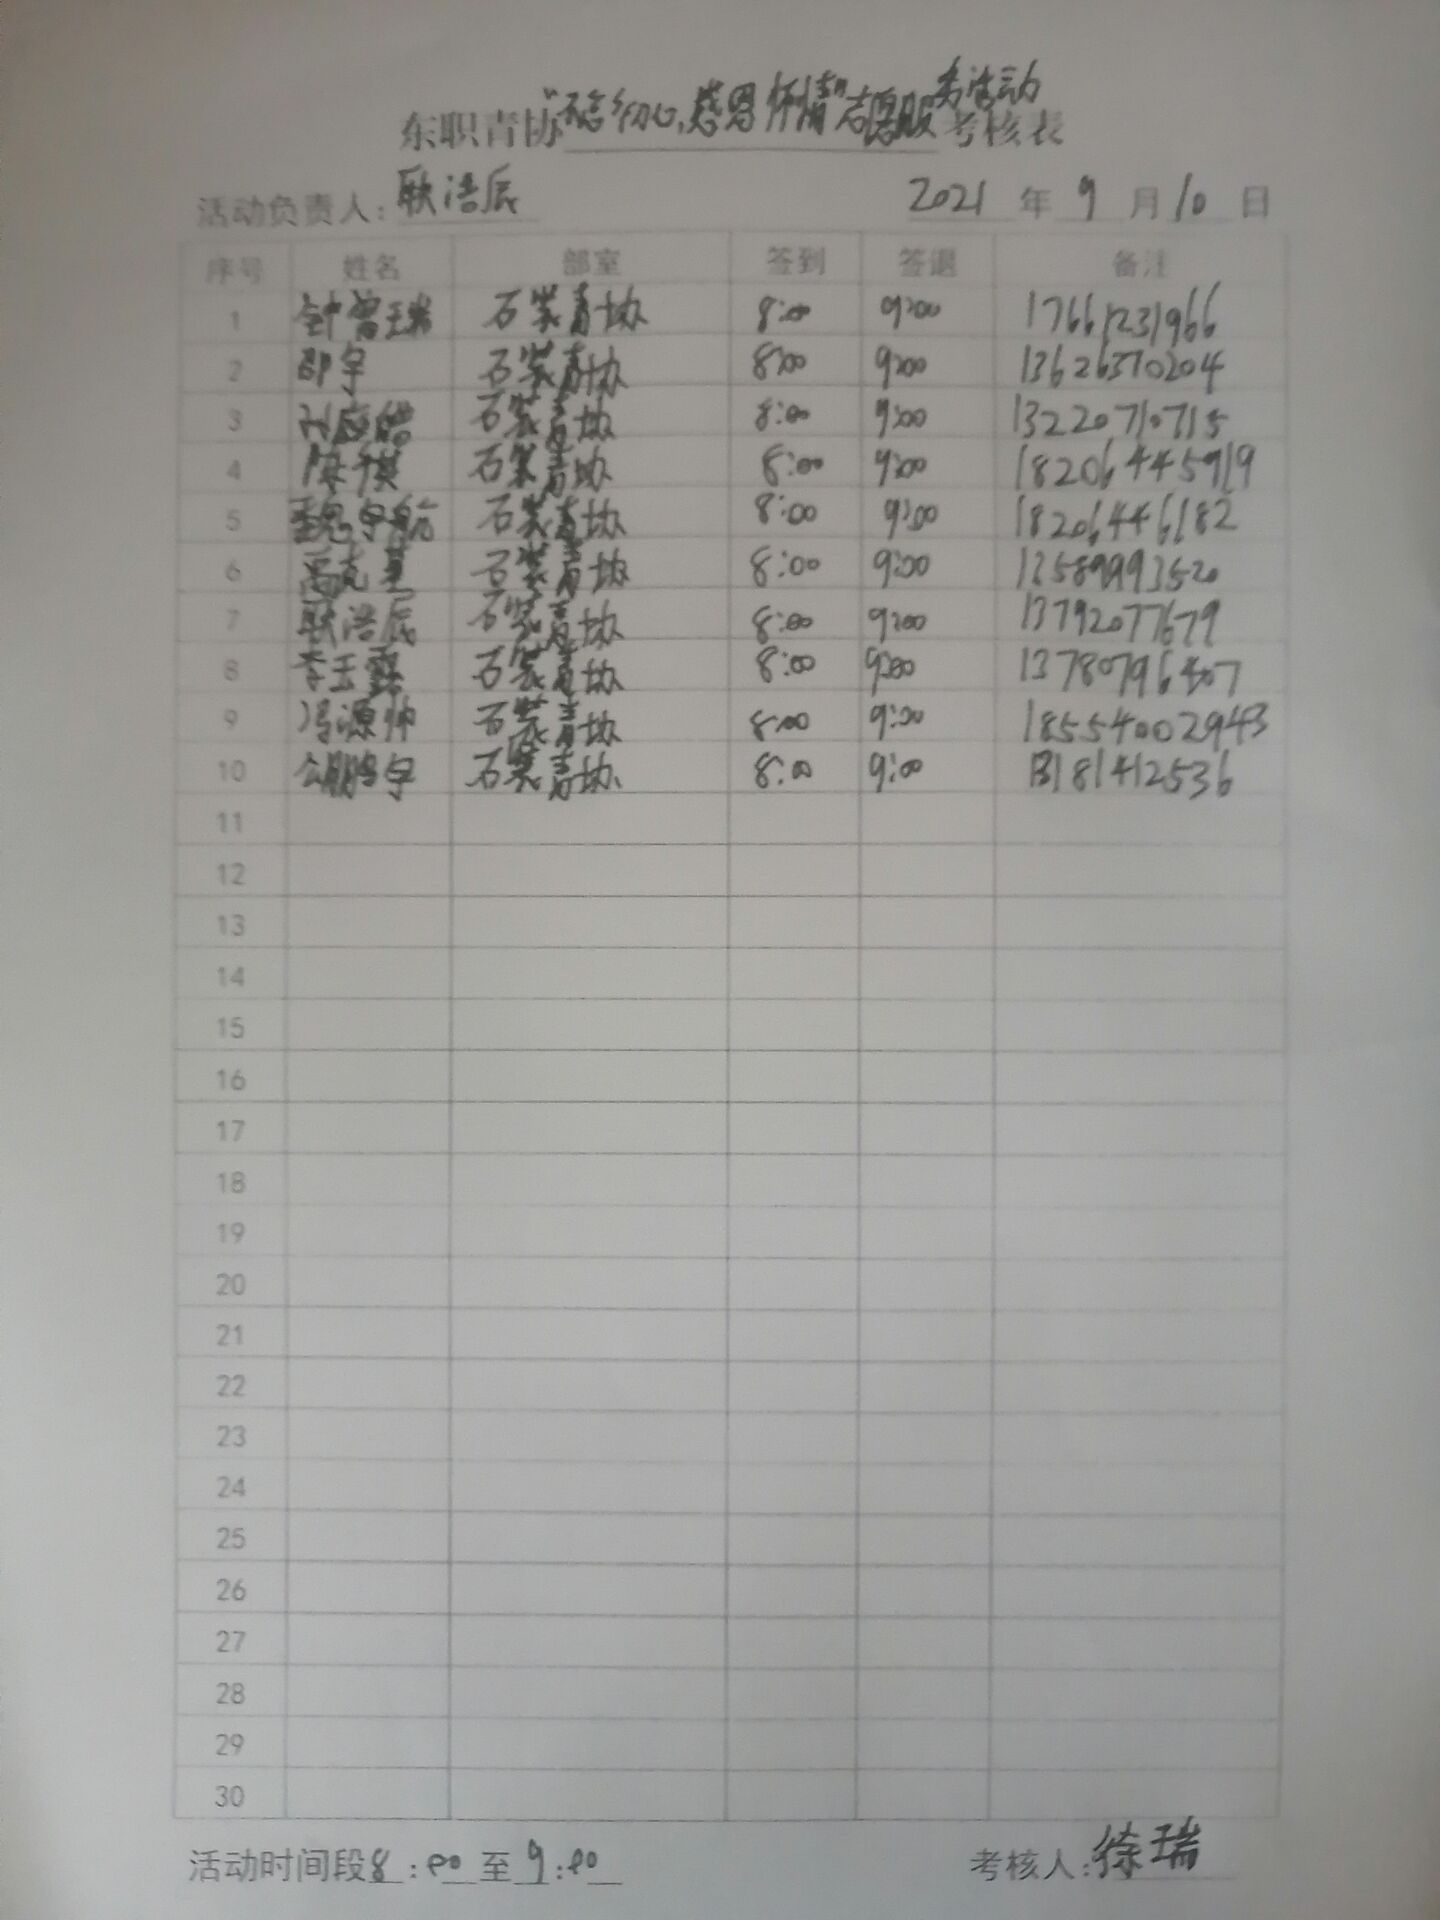 东职青协"不忘初心,感恩怀情"志愿服务活动考核表
活动负责人:耿浩辰 2021 年 9 月 10 日
序号 姓名 部室 签到 签退 备注
1 钟曾瑞 石装青协 8:00 9:00 17661231966
2 邵宇 石装青协 8:00 9:00 13626370204
3 石装青协 8:00 9:00 13220710715
4 陈祺 石装青协 8:00 9:00 18206445919
5 魏宇航 石装青协 8:00 9:00 18206446182
6 高克基 石装青协 8:00 9:00 13589993520
7 耿浩辰 石装青协 8:00 9:00 13792077679
8 李玉露 石装青协 8:00 9:00 13780796407
9 冯源帅 石装青协 8:00 9:00 18554002943
10 石装青协 8:00 9:00 13181412536
11
12
13
14
15
16
17
18
19
20
21
22
23
24
25
26
27
28
29
30
活动时间段8:00至9:00 考核人:徐瑞